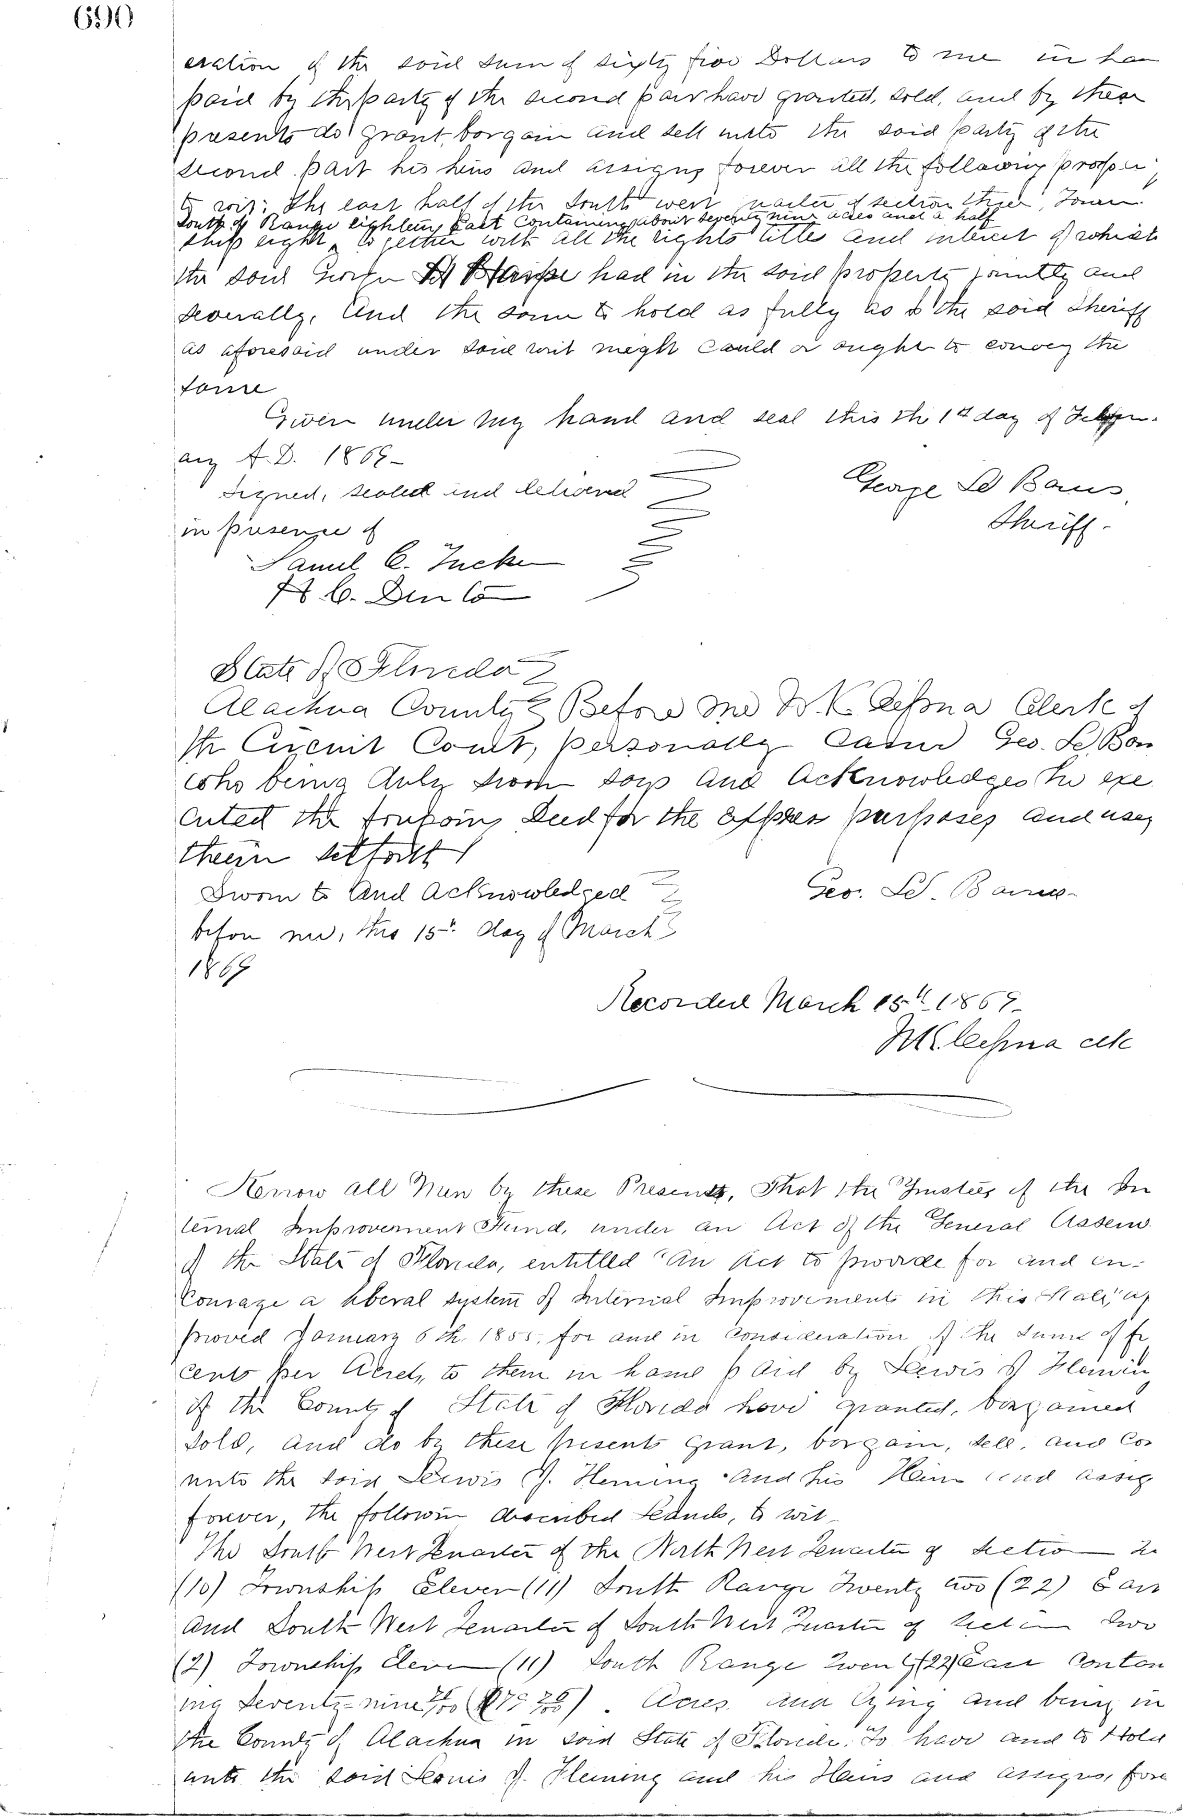 690
eration of the said sum of sixty five Dollars to me in han
paid by the party of the second part have granted, sold, and by these
presents do grant, bargain and sell unto the said party of the
second part his heirs and assigns forever all the following proper
to wit: The east half of the South west quarter of section three, Town-
South of Range Eighteen East Containing about seventy nine acres and a half
ship eight together with all the rights titles and interest of which
the said George H had in the said property jointly and
severally, And the same to hold as fully as I the said Sheriff
as aforesaid under said writ might could or ought to convey the
same
Given under my hand and seal this the 1st day of Febru-
ary A.D. 1869-
Signed, sealed and delivered
George Ld Barns,
in presence of
Sheriff.
Samul C. Tucker
H C. Denton
State of Florida
Alachua County Before me W. K. Cessna Clerk of
the Circuit Court, personally came Geo. Ld. Barn
who being duly sworn says and acknowledges he exe
cuted the foregoing Deed for the express purposes and uses
therein setforth
Sworn to and acknowledged
Geo. Ld. Barnes
before me, this 15th day of March
1869
Recorded March 15th 1869-
W K Cessna clk
Know all Men by these Presents, That the Trustees of the In
ternal Improvement Fund, under an Act of the General Assem
of the State of Florida, entitled "An Act to provide for and en-
courage a liberal system of Internal Improvements in this State," ap
proved January 6th 1855, for and in consideration of the sum of
cents per Acre, to them in hand paid by Lewis J Flemin
of the County of State of Florida have granted, bargained
sold, and do by these presents grant, bargain, sell, and con
unto the said Lewis J. Fleming and his Heirs and assig
forever, the following described Lands, to wit-
The South West Quarter of the North West Quarter of Section
(10) Township Eleven (11) South Range Twenty two (22) East
and South West Quarter of South West Quarter of Section Two
(2) Township Eleven (11) South Range Twenty (22) East Contain
ing Seventy-nine Acres and lying and being in
the County of Alachua in said State of Florida. To have and to Hold
unto the said Lewis J. Fleming and his Heirs and assigns, fore